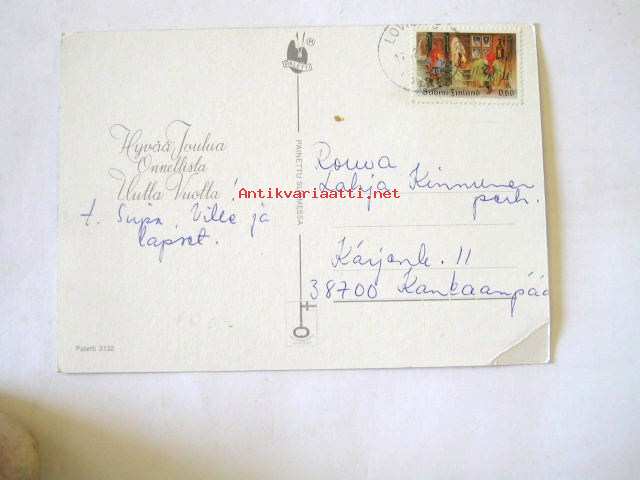 PALETTI
®
LOVI
Suomi Finland 0,60
Hyvää Joulua
Onnellista
Uutta Vuotta!
t. Sirpa, Ville ja
lapset.
PAINETTU SUOMESSA
Antikvariaatti.net
Rouva
Lahja Kinnunen
perh.
Karjenk. 11
38700 Kankaanpää
Paletti 3132